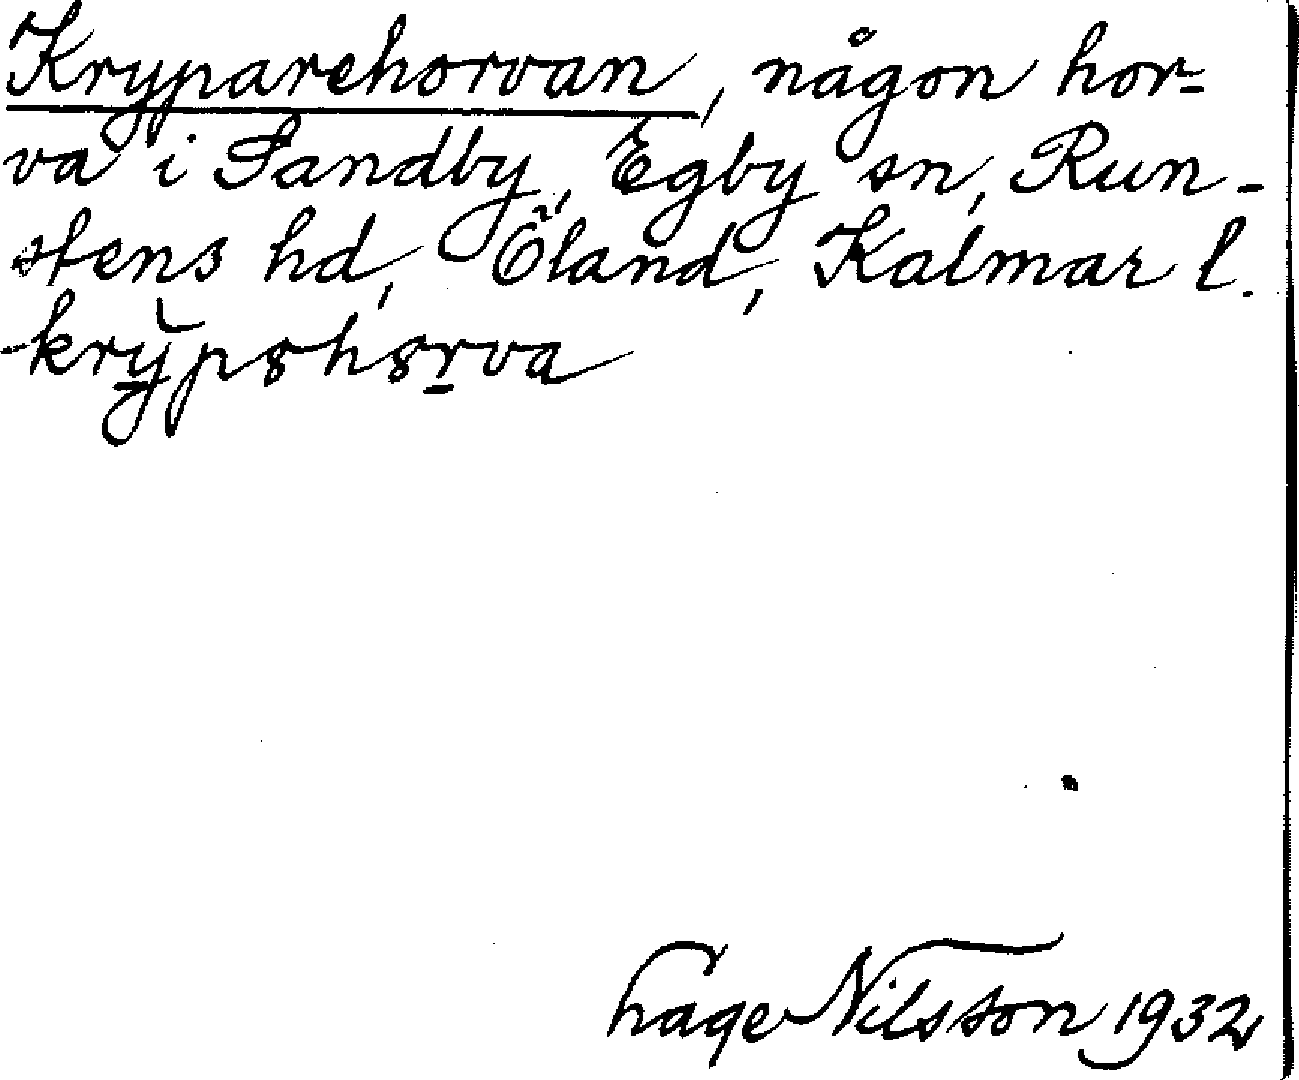 Kryparehorvan, någon hor-
va i Sandby, Egby sn, Run-
stens hd, Öland, Kalmar l.
Nilsson 1932